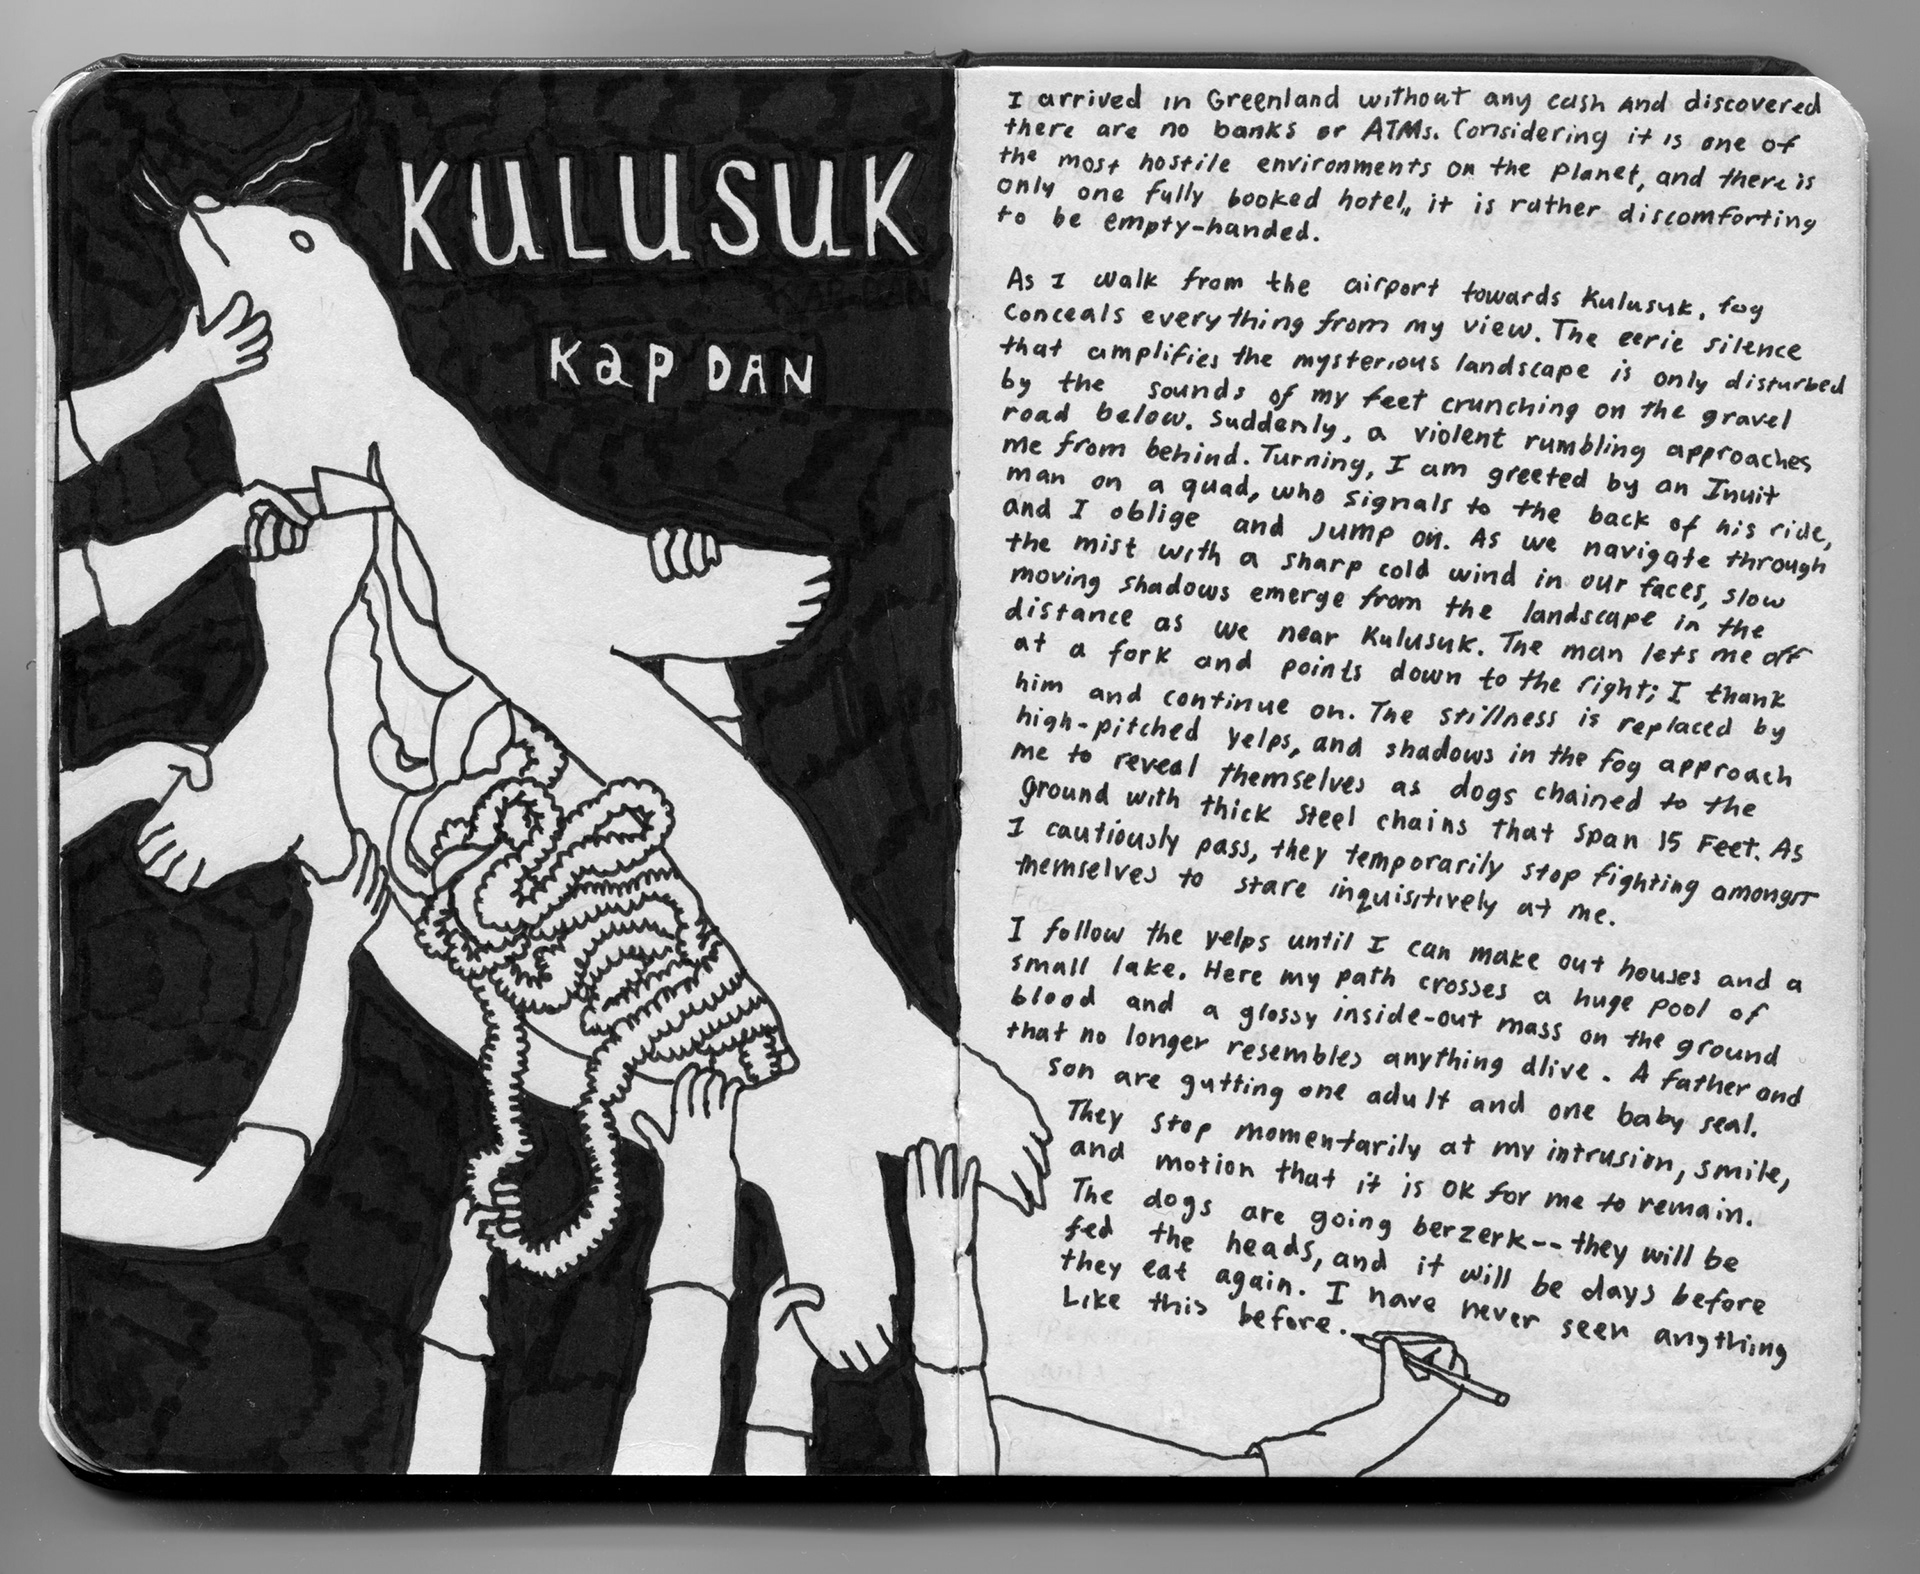 KULUSUK
Kap DAN
I arrived in Greenland without any cash and discovered
there are no banks or ATMs. Considering it is one of
the most hostile environments on the planet, and there is
only one fully booked hotel, it is rather discomforting
to be empty-handed.
As I walk from the airport towards Kulusuk, fog
conceals everything from my view. The eerie silence
that amplifies the mysterious landscape is only disturbed
by the sounds of my feet crunching on the gravel
road below. Suddenly, a violent rumbling approaches
me from behind. Turning, I am greeted by an Inuit
man on a quad, who signals to the back of his ride,
and I oblige and jump on. As we navigate through
the mist with a sharp cold wind in our faces, slow
moving shadows emerge from the landscape in the
distance as we near Kulusuk. The man lets me off
at a fork and points down to the right; I thank
him and continue on. The stillness is replaced by
high-pitched yelps, and shadows in the fog approach
me to reveal themselves as dogs chained to the
ground with thick steel chains that span 15 Feet. As
I cautiously pass, they temporarily stop fighting amongst
themselves to stare inquisitively at me.
I follow the yelps until I can make out houses and a
small lake. Here my path crosses a huge pool of
blood and a glossy inside-out mass on the ground
that no longer resembles anything alive. A father and
son are gutting one adult and one baby seal.
They stop momentarily at my intrusion, smile,
and motion that it is OK for me to remain.
The dogs are going berzerk-- they will be
fed the heads, and it will be days before
they eat again. I have never seen anything
Like this before.